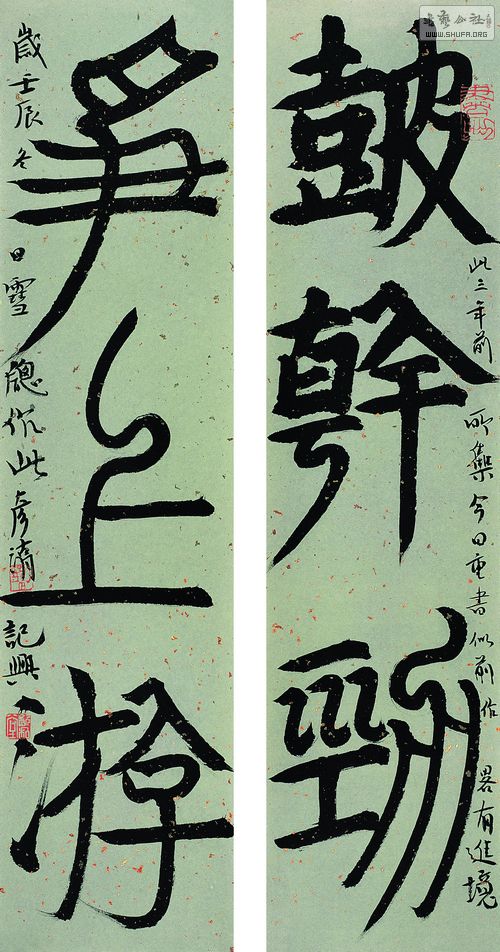 皷幹勁
此三年前所集今日重書似前作畧有進境
爭上游
歲壬辰冬日雪牕作此彥 記興
书艺公社
WWW.SHUFA.ORG